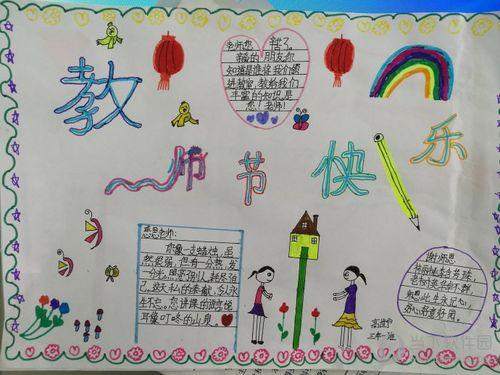 教师节快乐
老师您 辛苦了。
亲爱的朋友你
知道是谁将我们领
进教室,教给我们
丰富的知识,是
您!老师!
感恩老师:
你像一支蜡烛,虽
然细弱,但有一分热,发
一分光,照亮了别人,耗尽了自
己。这无私的奉献,令人永
生不忘。您讲课的语言,悦
耳像叮咚的山泉。
谢师恩
三年一班